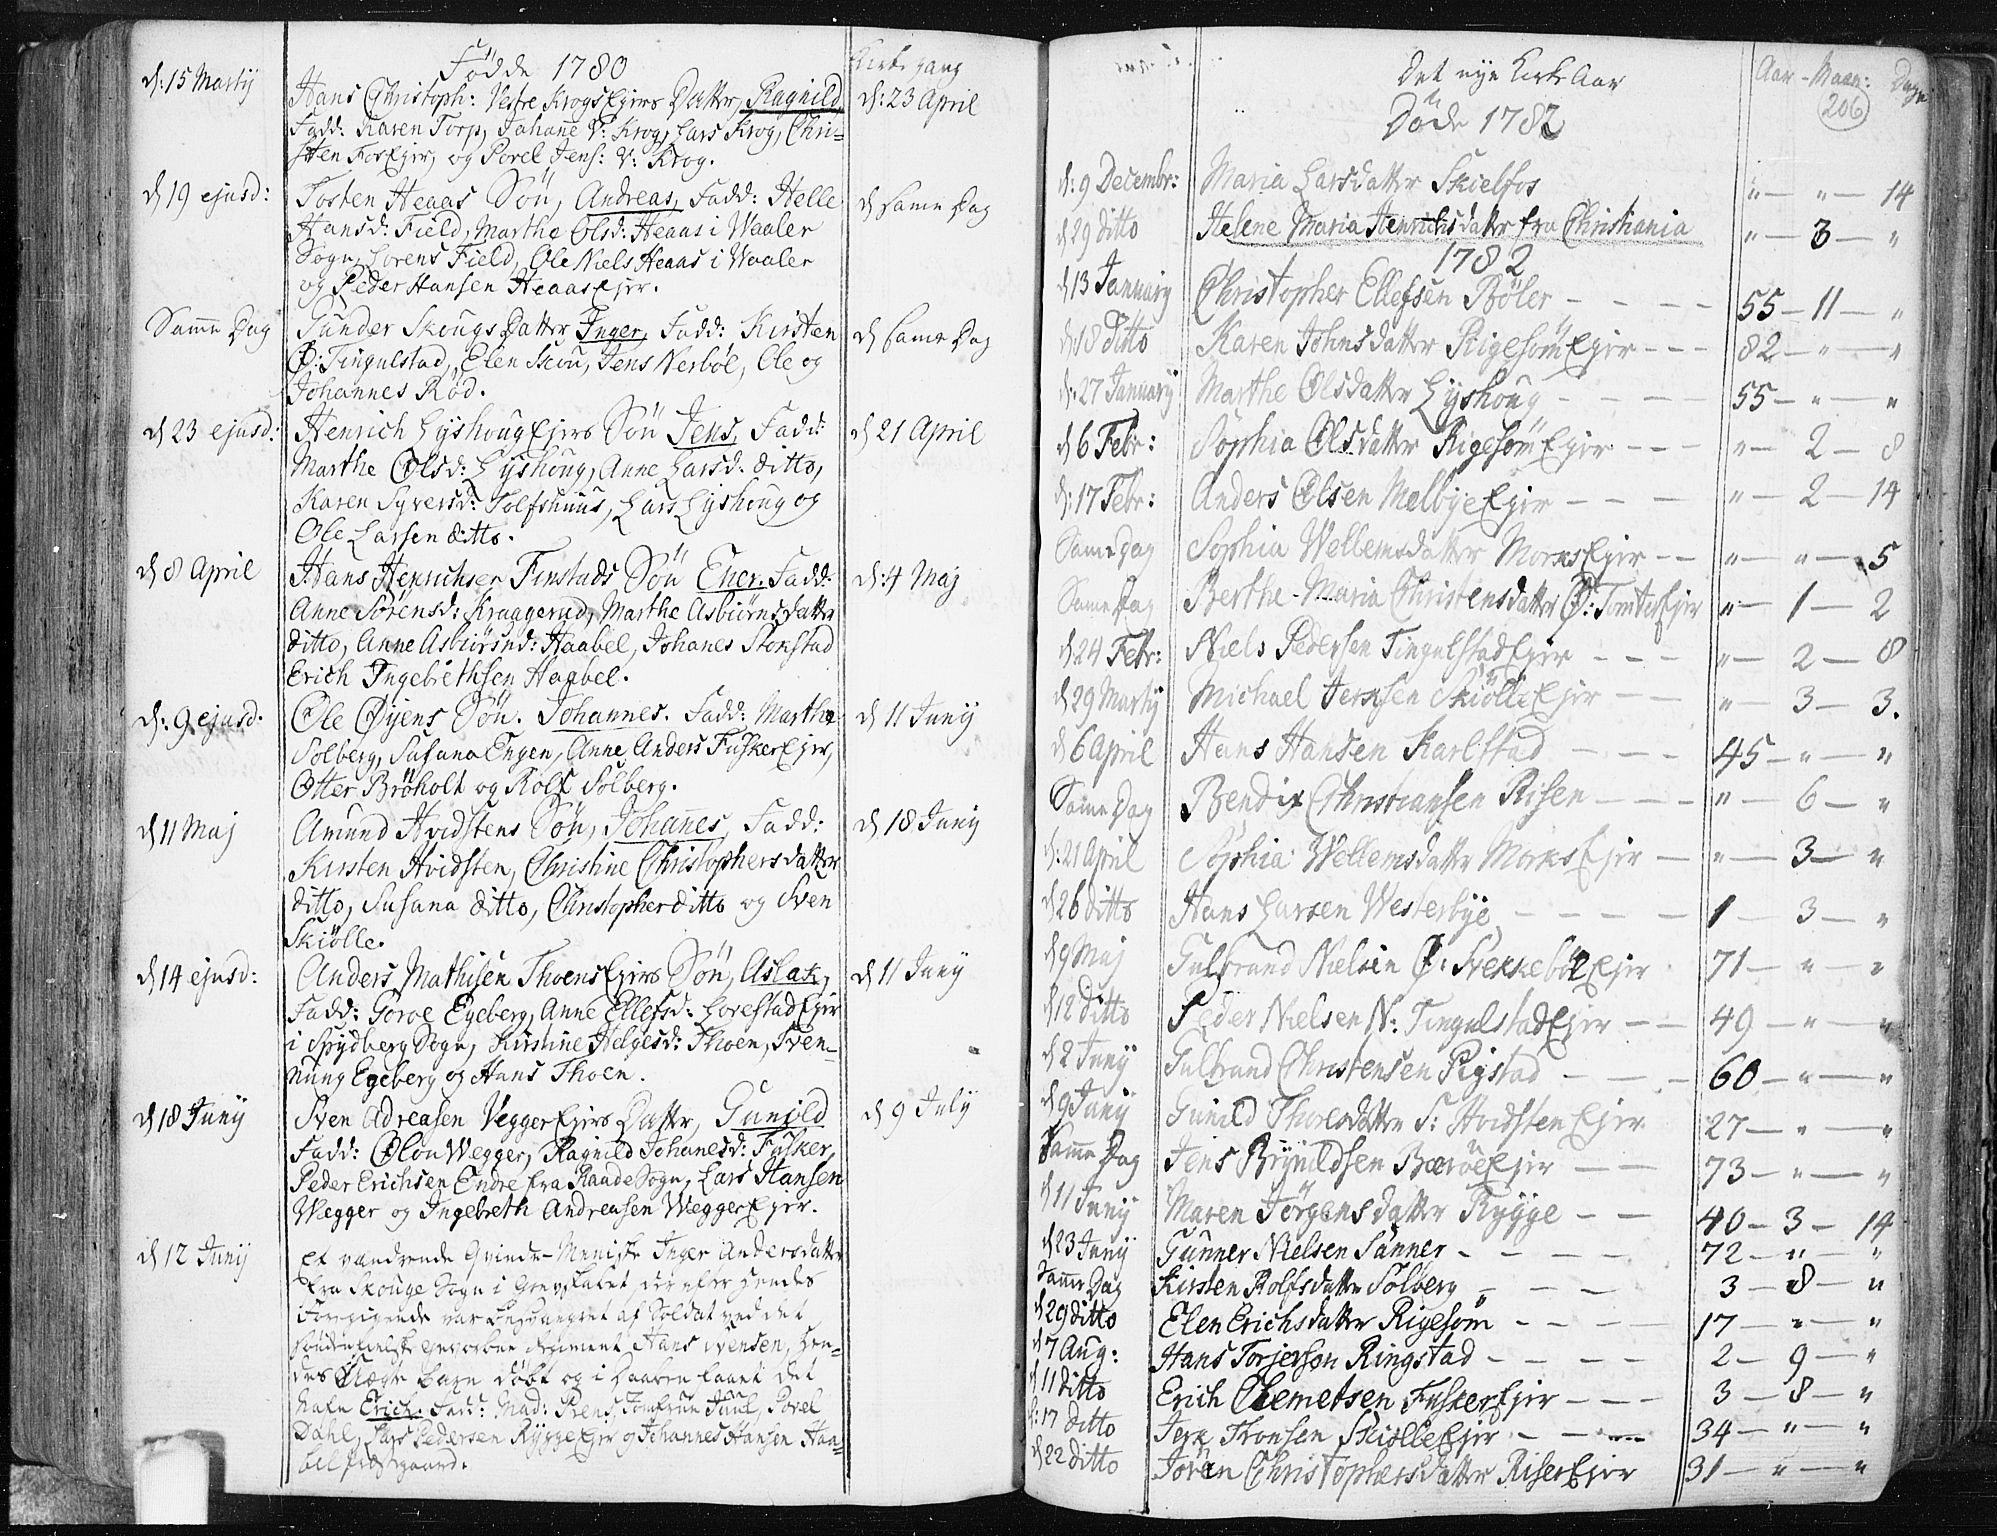 Fødde 1780
Kirke gang
d: 15 Martij
Hans Christoph: Vestre Krogs Ejers Datter, Ragnild,
d: 23 April
Fadd: Karen Torp, Johane V: Krog, Lars Krog, Chri-
sten Fos Ejer, og Povel Jens: V: Krog.
d 19 ejusd:
Tosten Heaas Søn, Andreas, Fadd: Helle
d samme Dag
Hansd: Field, Marthe Olsd: Heaas i Waaler
Sogn, Lorens Field, Ole Niels Heaas i Waaler
og Peder Hansen Heaas Ejer.
Samme Dag
Gunder Skougs Datter Inger, Fadd: Kirsten
d samme Dag
Ø: Tingulstad, Elen Skou, Jens Nerbøl, Ole og
Johannes Rød.
d 23 ejusd:
Henrich Lyshoug Ejers Søn Jens, Fadd:
d 21 April
Marthe Olsd: Lyshoug, Anne Larsd: ditto,
Karen Syversd: Tolfshuus, Lars Lyshoug og
Ole Larsen ditto.
d 8 April
Hans Henrichsen Finstads Søn Ener. Fadd:
d: 4 Maj
Anne Sørensd: Kraggerud, Marthe Asbiørnsdatter
ditto, Anne Asbiørnd: Haabel, Johanes Stomstad
Erich Ingebrethsen Haabel.
d: 9 ejusd.
Ole Øyens Søn. Johannes. Fadd: Marthe
d 11 Junij
Solberg, Susana Engen, Anne Anders Fusker Ejer,
Otter Brøholt og Rolf Solberg.
d 11 Maj
Amund Hvidstens Søn, Johanes, Fadd:
d 18 Junij
Kirsten Hvidsten, Christine Christophersdatter
ditto, Susana ditto, Christopher ditto og Sven
Skiølle.
d 14 ejusd:
Anders Mathisen Thoens Ejers Søn, Aslak,
d 11 Junij
Fadd: Goroe Egeberg, Anne Ellefsd: Lovestad Ejer
i Spydberg Sogn, Kirstine Helgesd: Thoen, Sven-
nung Egeberg og Hans Thoen.
d 18 Junij
Sven Adreasen Vegger Ejers Datter, Gunild
d 9 July
Fadd: Olou Wegger, Ragnild Johanesd: Fusker,
Peder Erichsen Endre fra Raade Sogn, Lars Hansen
Wegger og Ingebreth Andreasen Wegger Ejer.
d 12 Junij
et vandrende Qvinde-Menniske Inger Andersdatter
fra Skouge Sogn i Grevskabet der efter hendes
Foregivende var besvangret af Soldat ved det
Søndenfielske gevorbne Regiment Hans Svensen, hen-
des Uægte barn døbt og i Daaben kaant det
Nafn Erich. Fadd: Mad: Rens, Jomfrue Juul, Povel
Dahl, Lars Pedersen Rygge Ejer og Johannes Hansen Haa-
bel Præstgaard.
Det nye Kirke Aar
Døde 1782
Aar - Maan: Dage
206
d: 9 Decembr: Maria Larsdatter Skielfos " — " — 14
d 29 ditto Helene Maria Henrichsdatter fra Christiania " — 3 — "
1782
d 13 January Christopher Ellefsen Bøler — — — — 55 — 11 — "
d 18 ditto Karen Johnsdatter Rigesøm Ejer — — — 82 — " — "
d: 27 January Marthe Olsdatter Lyshoug — — — — 55 — " — "
d 6 Febr: Sophia Olsdatter Rigesøm Ejer — — — " — 2 — 8
d: 17 Febr: Anders Olsen Mælbye Ejer — — — " — 2 — 14
Samme Dag Sophia Wellemsdatter Morks Ejer — — " — " — 5
Samme Dag Berthe-Maria Christensdatter Ø: Tomter Ejer " — 1 — 2
d 24 Febr: Niels Pedersen Tingulstad Ejer — — — " — 2 — 8
d 29 Martij Michael Jensen Skiølle Ejer — — " — 3 — 3.
d 6 April Hans Hansen Karlstad — — — 45 — " — "
Samme Dag Bendix Christiansen Risen — — — " — 6 — "
d: 21 April Sophia Wellemsdatter Morks Ejer — " — 3 — "
d 26 ditto Hans Larsen Westerbye — — — — 1 — 3 — "
d 9 Maj Gulbrand Nielsen Ø: Svekkebøl Ejer 71 — " — "
d 12 ditto Peder Nielsen N: Tingulstad Ejer — — 49 — " — "
d 2 Junij Gulbrand Christensen Rigstad — — — 60 — " — "
d 9 Junij Gunild Thoresdatter S: Hvidsten Ejer 27 — " — "
Samme Dag Jens Brynildsen Bærøe Ejer — — 73 — " — "
d 11 Junij Maren Jørgensdatter Rygge — — 40 — 3 — 14
d 23 Junij Gunner Nielsen Sanner — — — — 72 — " — "
Samme Dag Kirsten Rolfsdatter Solberg — — — — 3 — 8 — "
d 29 ditto Elen Erichsdatter Rigesøm — — — — 17 — " — "
d 7 Aug: Hans Torjerson Ringstad — — — — 2 — 9 — "
d 11 ditto Erich Clemetsen Fusker Ejer — — — 3 — 8 — "
d: 17 ditto Jerk Tronsen Skiølle Ejer — — — 34 — " — "
d 22 ditto Joren Christophersdatter Riser Ejer 31 — " — "